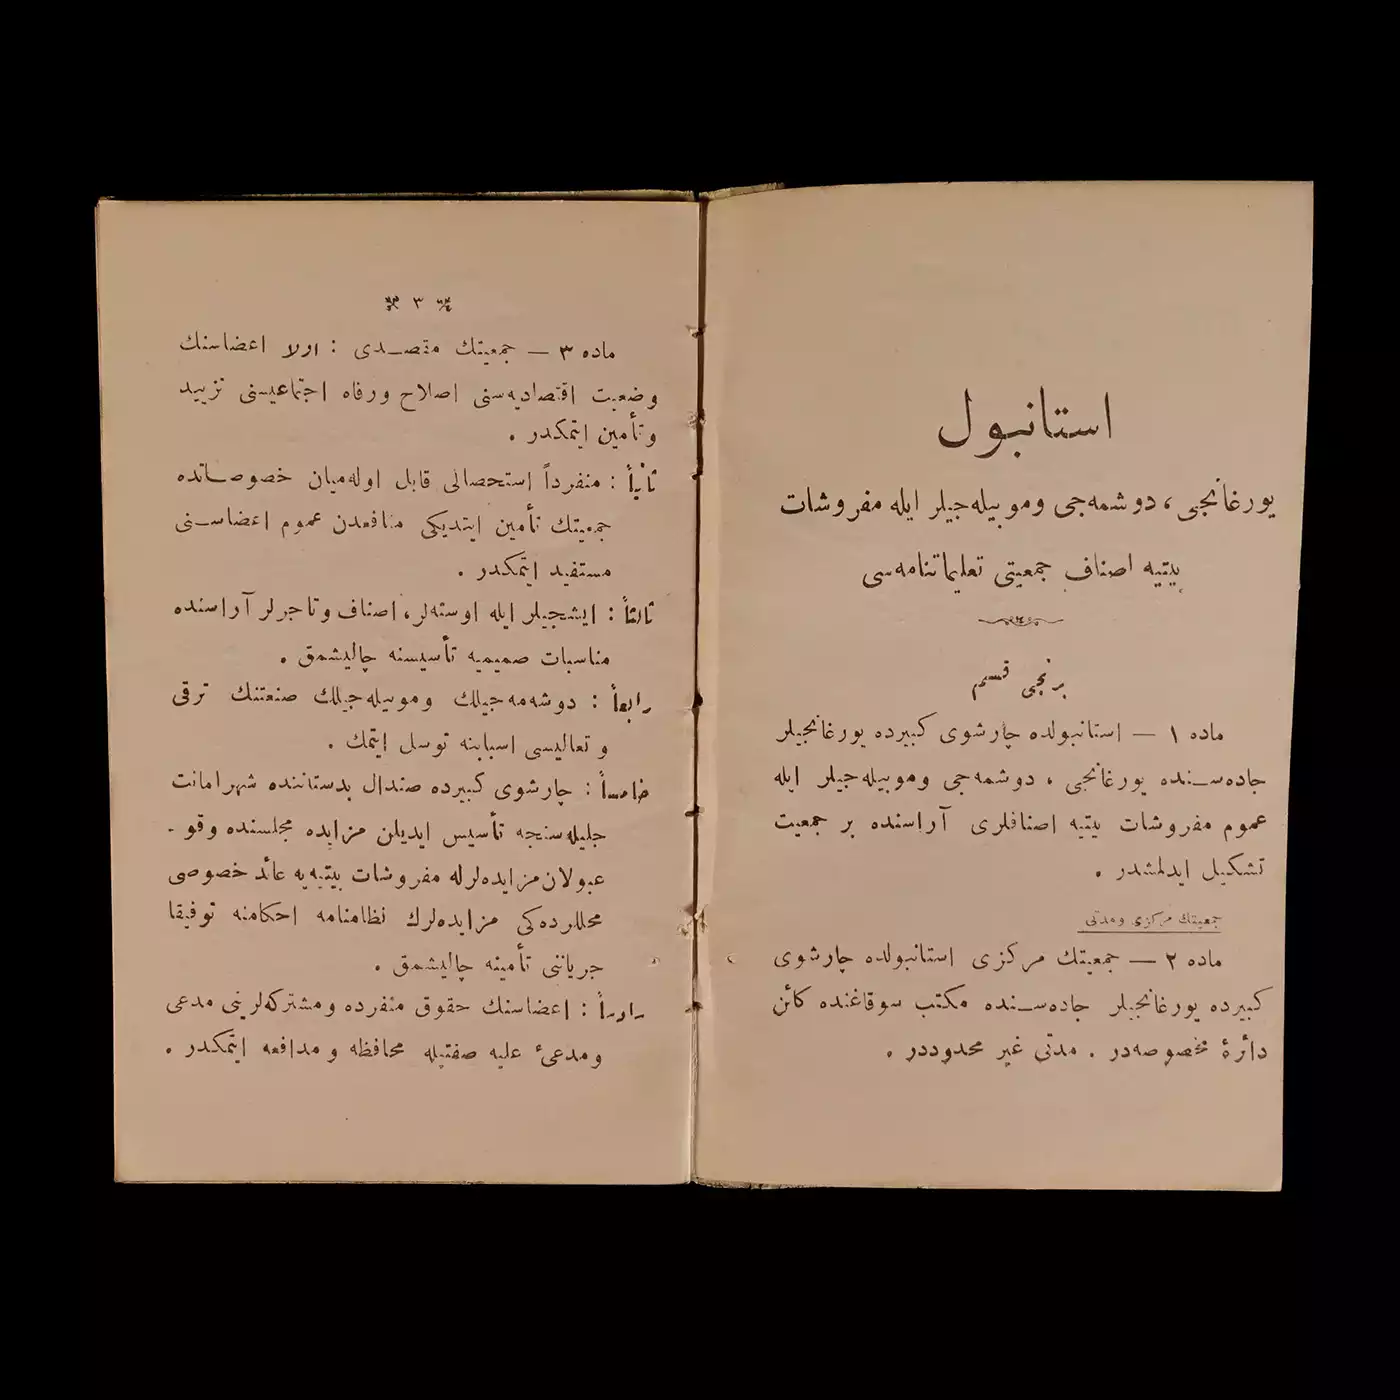 استانبول
یورغانجی ، دوشمه‌جی وموبیله‌جیلر ایله مفروشات
بیتیه اصناف جمعیتی تعلیماتنامه‌سی
برنجی قسم
ماده ۱ — استانبولده چارشوی کبیرده یورغانجیلر
جاده‌سنده یورغانجی ، دوشمه‌جی وموبیله‌جیلر ایله
عموم مفروشات بیتیه اصنافلری آراسنده بر جمعیت
تشکیل ایدلمشدر .
جمعیتك مرکزی ومدتی
ماده ۲ — جمعیتك مرکزی استانبولده چارشوی
کبیرده یورغانجیلر جاده‌سنده مکتب سوقاغنده کائن
دائرۀ مخصوصه‌در . مدتی غیر محدوددر .
۳
ماده ۳ — جمعیتك مقصدی : اولا اعضاسنك
وضعیت اقتصادیه‌سنی اصلاح ورفاه اجتماعیسنی تزیید
وتأمین ایتمکدر .
ثانیاً : منفرداً استحصالی قابل اوله‌میان خصوصاتده
جمعیتك تأمین ایتدیکی منافعدن عموم اعضاسنی
مستفید ایتمکدر .
ثالثاً : ایشجیلر ایله اوسته‌لر، اصناف وتاجرلر آراسنده
مناسبات صمیمیه تأسیسنه چالیشمق .
رابعاً : دوشه‌مه‌جیلك وموبیله‌جیلك صنعتنك ترقی
و تعالیسی اسبابنه توسل ایتمك .
خامساً : چارشوی کبیرده صندال بدستاننده شهرامانت
جلیله‌سنجه تأسیس ایدیلن مزایده مجلسنده وقو -
عبولان مزایده‌لرله مفروشات بیتیه‌یه عائد خصوصی
محللرده‌کی مزایده‌لرك نظامنامه احکامنه توفیقا
جریاننی تأمینه چالیشمق .
سادساً : اعضاسنك حقوق منفرده ومشترکه‌لرینی مدعی
ومدعیٔ علیه صفتیله محافظه و مدافعه ایتمکدر .